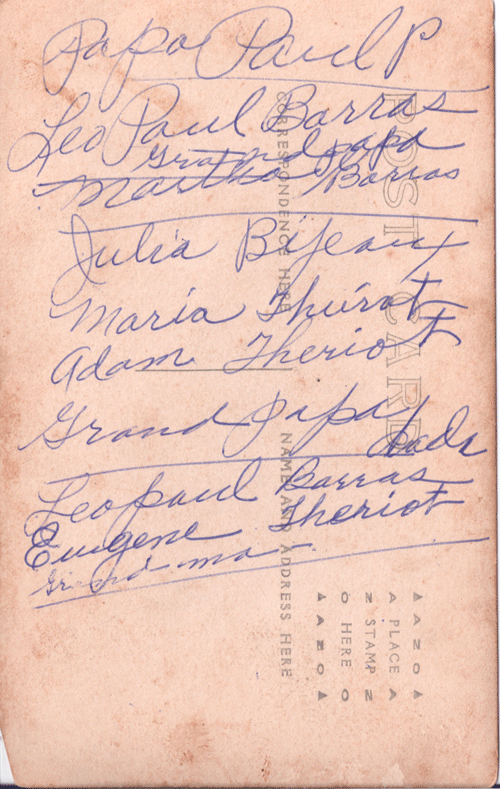 Papa Paul P
Leo Paul Barras
Grand papa
Martha Barras
Julia Bijeaux
Maria Thuirot
Adam Theriot
Grand Papa
Leopaul Barras
Eugene Theriot
Grand-ma-
POST CARD
CORRESPONDENCE HERE
NAME AND ADDRESS HERE
AZO
PLACE
STAMP
HERE
AZO